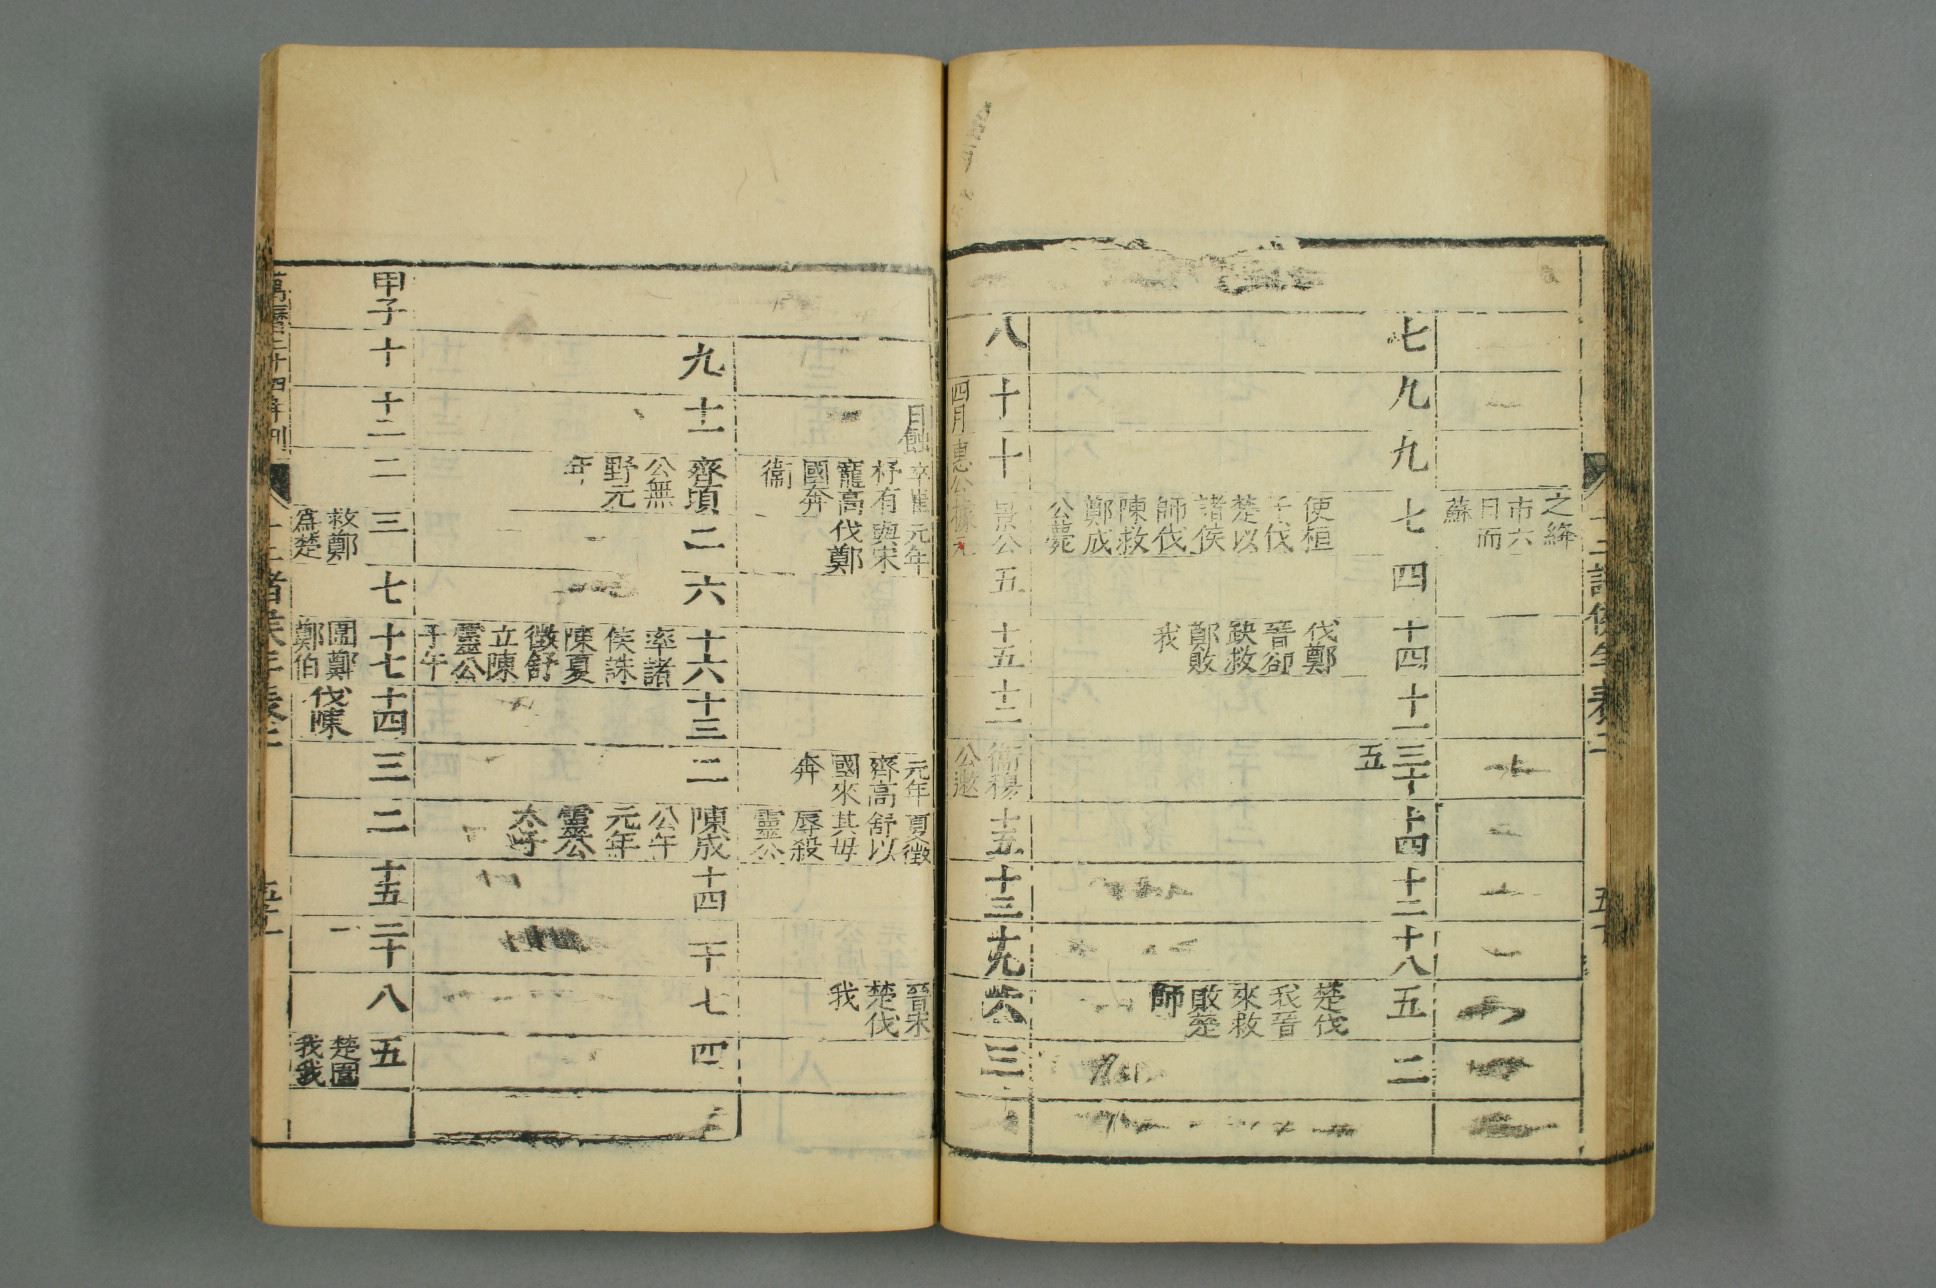 十二諸侯年表二
五十
之絳
市六
日而
蘇
七
九
九
七
使桓
子伐
楚以
諸侯
師伐
陳救
鄭成
公薨
四
十四
伐鄭
晉郤
缺救
鄭敗
我
十一
三十
五
十四
十二
十八
五
楚伐
我晉
來救
敗楚
師
二
八
十
四月
十
惠公據元
景公
五
十五
十二
衛穆
公遬
十五
十三
十九
六
三
日蝕
卒崔
杼有
寵高
國奔
衛
元年
與宋
伐鄭
元年
齊高
國來
奔
夏徵
舒以
其母
辱殺
靈公
晉宋
楚伐
我
九
十一
齊頃
公無
野元
年
二
六
十六
率諸
侯誅
陳夏
徵舒
立陳
靈公
子午
十三
二
陳成
公午
元年
靈公
太子
十四
二十
七
四
甲子
十
十二
二
三
救鄭
爲楚
七
十七
圍鄭
鄭伯
十四
伐陳
三
二
十五
二十
一
八
五
楚圍
我我
萬曆二十四年刊
十二諸侯年表二
五十一